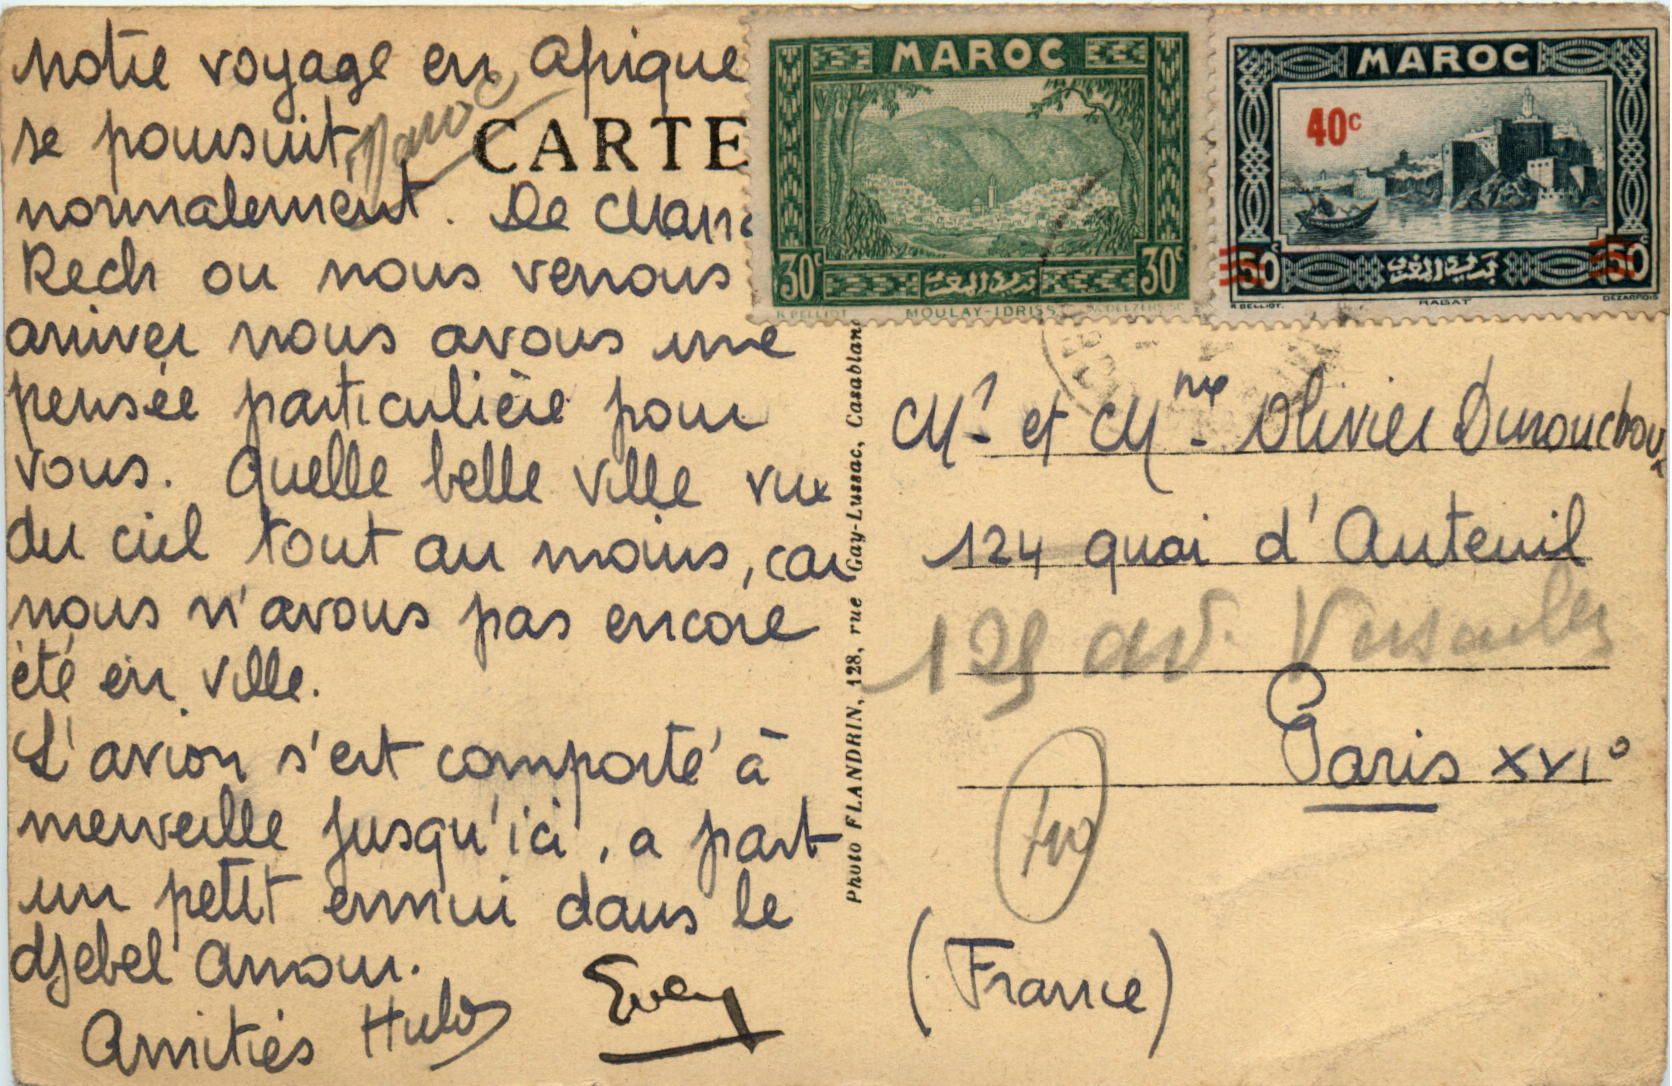 Notre voyage en Afrique
se poursuit
Maroc
normalement. De Marra
Kech ou nous venons
arriver nous avons une
pensée particulière pour
vous. Quelle belle ville vue
du ciel tout au moins, car
nous n'avons pas encore
été en ville.
L'avion s'est comporté à
merveille jusqu'ici, a part
un petit ennui dans le
djebel Amour.
Amitiés
CARTE
Photo FLANDRIN, 128, rue Gay-Lussac, Casablanc
MAROC
30c 30c
MOULAY-IDRISS
MAROC
40c
50c 50c
R BELLIOT. RABAT DEZARROIS
Mr et Mme Olivier Durouchoux
124 quai d'Auteuil
125 av. Versailles
Paris XVI°
(France)